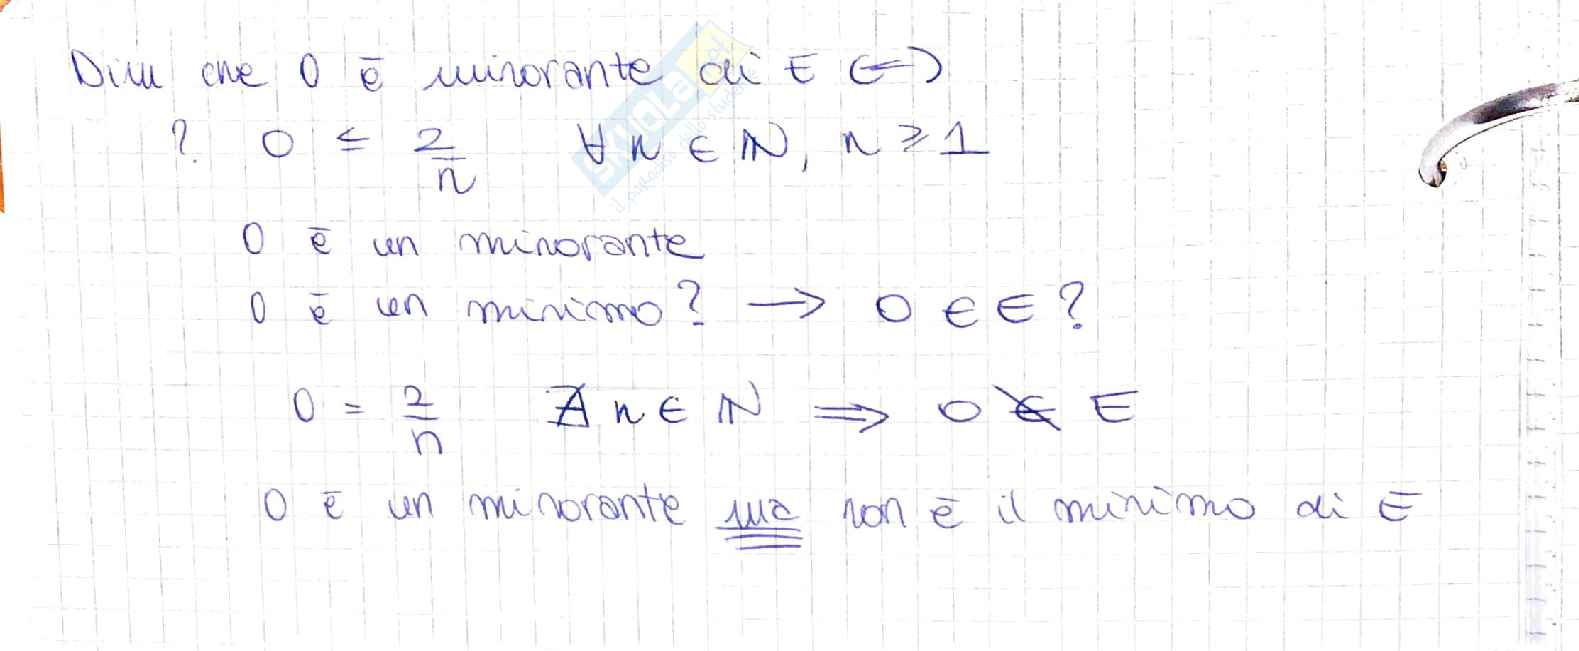 Dim che 0 è minorante di E ⟺
? 0 ≤ 2/n ∀ n ∈ ℕ, n ≥ 1
0 è un minorante
0 è un minimo? → 0 ∈ E?
0 = 2/n ∄ n ∈ ℕ ⇒ 0 ∉ E
0 è un minorante ma non è il minimo di E
SKUOLA.net